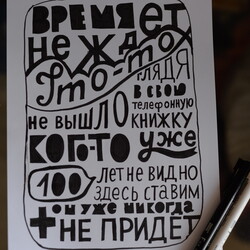 ВРЕМЯ ЕТ
НЕ ЖД
Что-то
ГЛЯДЯ
В СВОЮ
ТЕЛЕФОННУЮ
НЕ ВЫШЛО КНИЖКУ
КОГО-ТО уже
100 ЛЕТ НЕ ВИДНО
ЗДЕСЬ СТАВИМ
+ ОН УЖЕ НИКОГДА
НЕ ПРИДЁТ